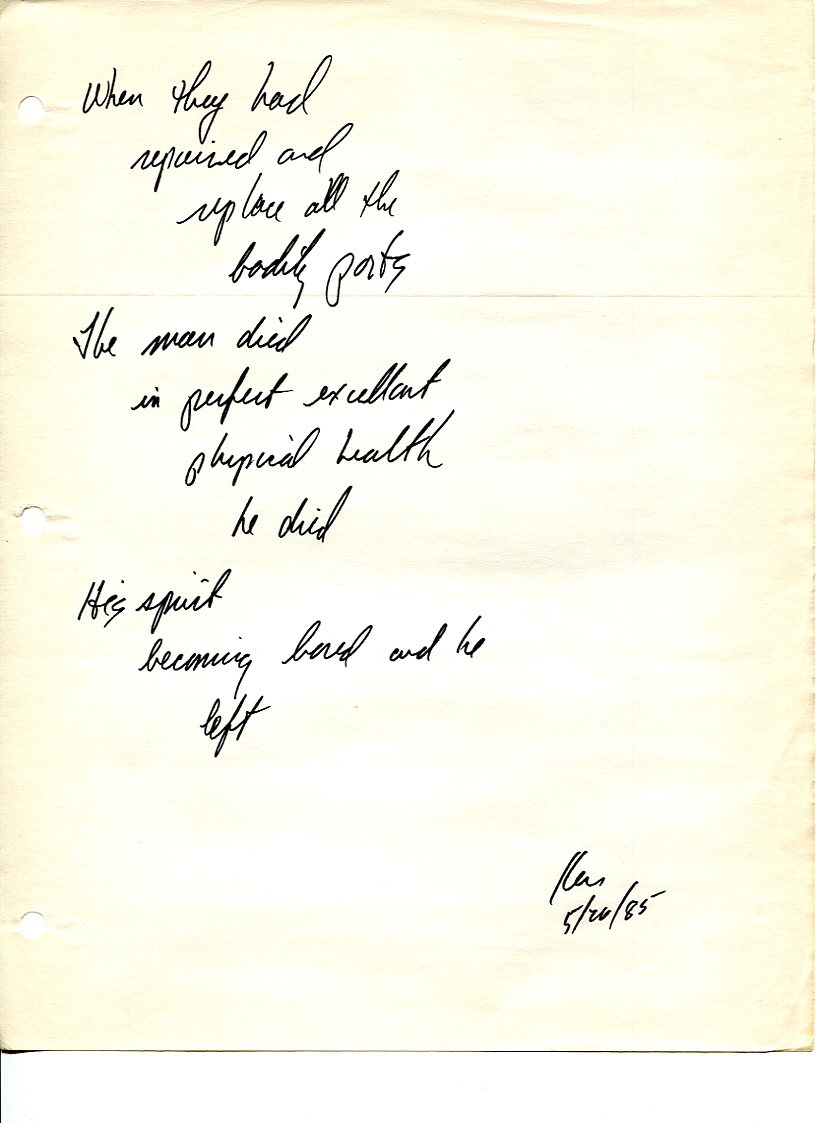 When they had
repaired and
replace all the
bodily parts
The man died
in perfect excellant
physical health
he died
His spirit
becoming bored and he
left
Ken
5/20/85